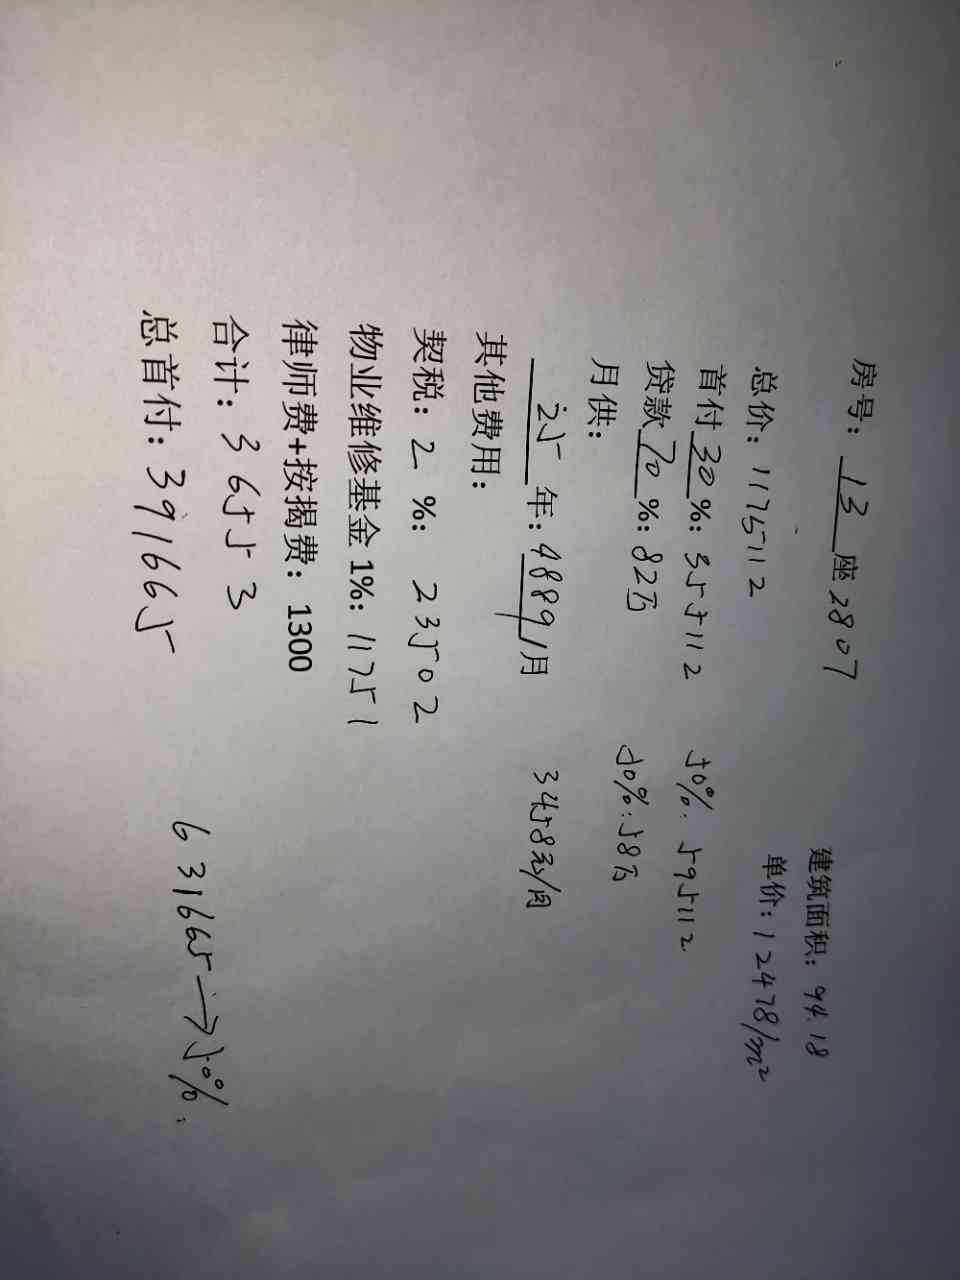 房号：13座2807
建筑面积：94.18
总价：1175112
单价：12478/m²
首付30%：355112
50%：595112
贷款70%：82万
50%：58万
月供：
25年：4889/月
3458元/月
其他费用：
契税：2%：23502
物业维修基金1%：11751
律师费+按揭费：1300
合计：36553
总首付：391665
631665→50%.